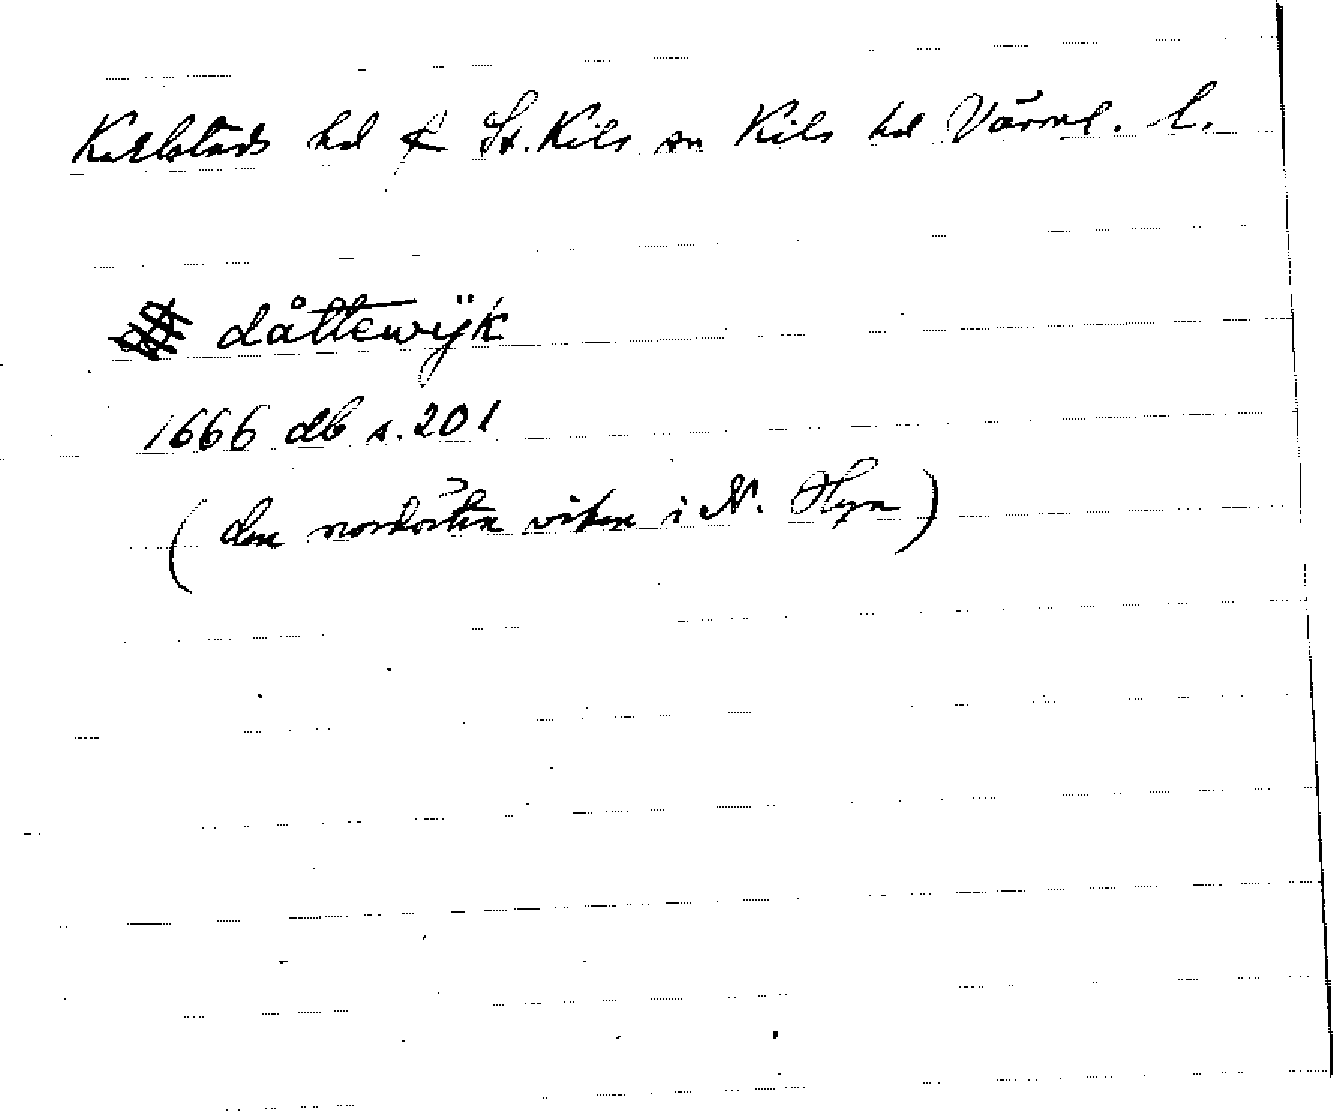 Karlstads hd f St. Kils sn Kils hd Värml. l.
dåttewÿk
1666 db s. 201
(den nordöstra viken i N. Hyn)